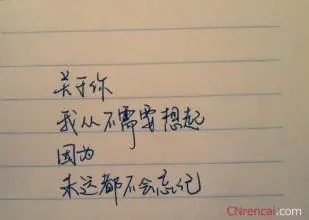 关于你
我从不需要想起
因为
永远都不会忘记
CNrencai.com